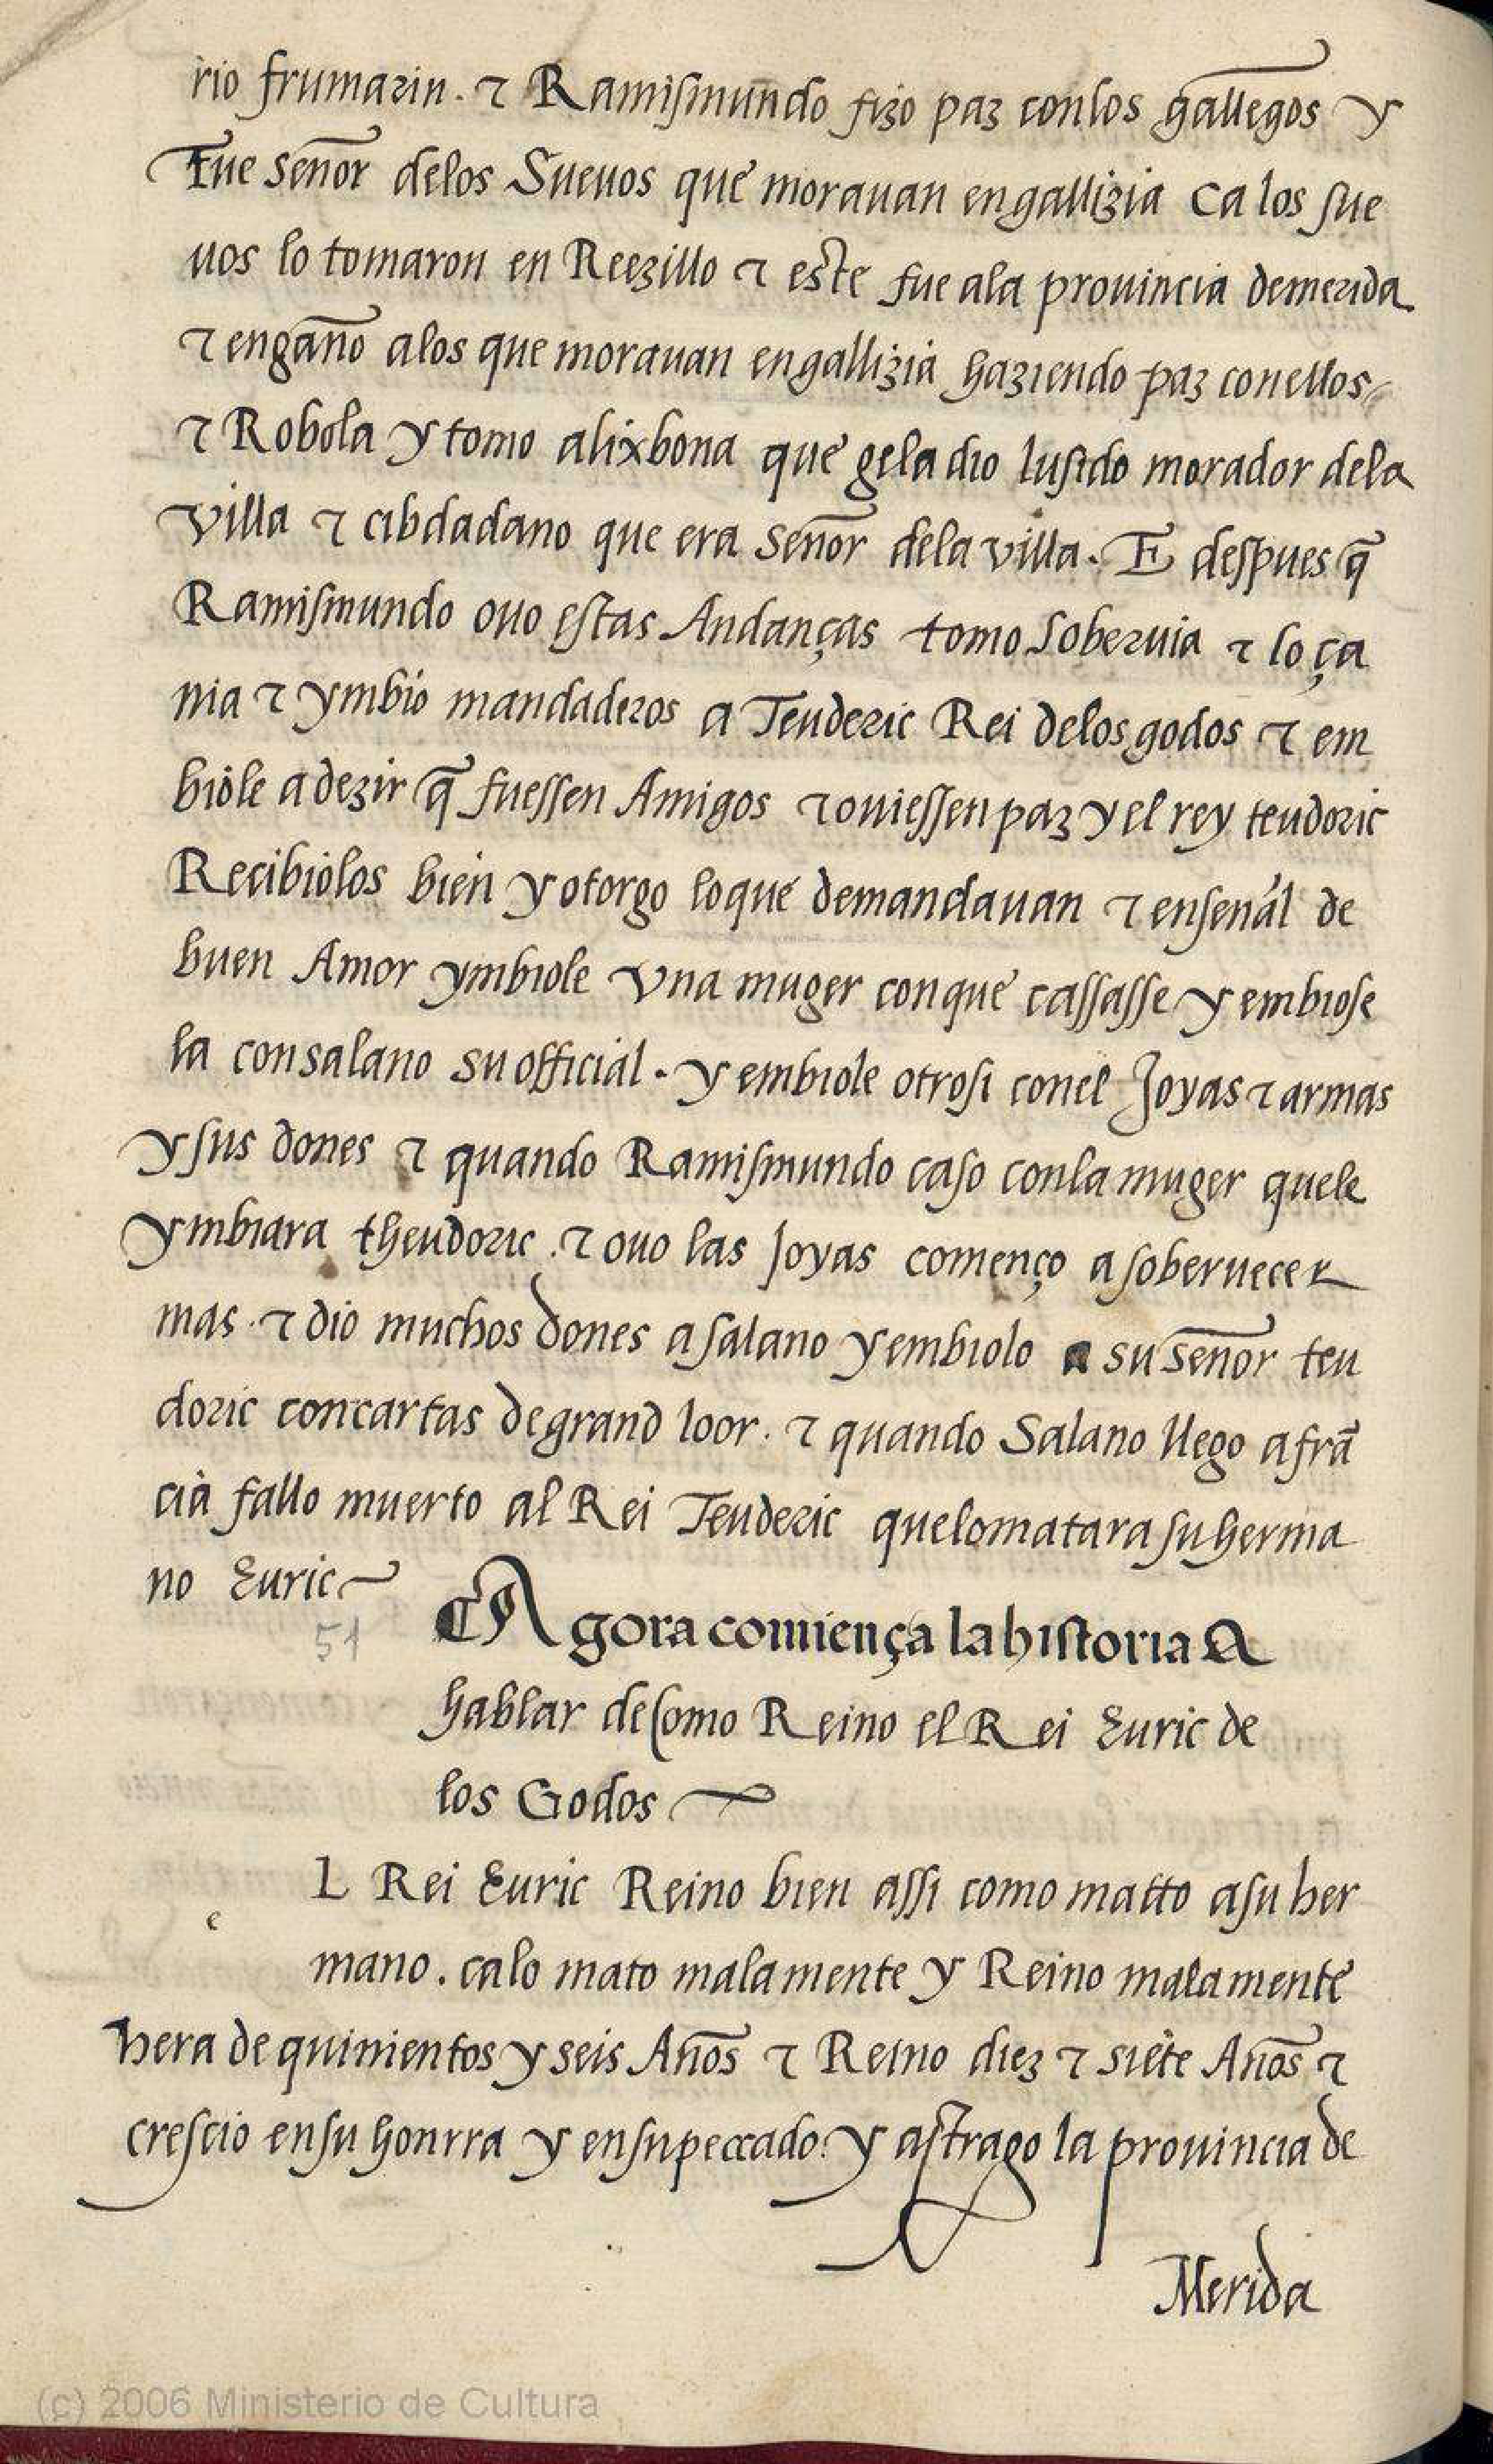 rio frumarin. ⁊ Ramismundo fizo paz conlos gallegos y
Fue señor delos Sueuos que morauan engallizia ca los sue
uos lo tomaron en Reezillo ⁊ este fue ala prouincia demerida
⁊ engaño alos que morauan engallizia haziendo paz conellos
⁊ Robola y tomo alixbona que gela dio lusido morador dela
villa ⁊ cibdadano que era señor dela villa. E despues q̃
Ramismundo ouo estas Andanças tomo soberuia ⁊ loça
nia ⁊ ymbio mandaderos a Teuderic Rei delos godos ⁊ em
biole a dezir q̃ fuessen Amigos ⁊ ouiessen paz y el rey teudoric
Recibiolos bien y otorgo loque demandauan ⁊ ensenal de
buen Amor ymbiole vna muger conque cassasse y embiose
la consalano su official. y embiole otrosi conel Joyas ⁊ armas
y sus dones ⁊ quando Ramismundo caso conla muger quele
ymbiara theudoric. ⁊ ouo las Joyas començo a soberuecer
mas. ⁊ dio muchos dones a salano y embiolo a su señor teu
doric concartas degrand loor. ⁊ quando Salano llego a frã
cia fallo muerto al Rei Teuderic quelomatara su herma
no Euric
51
Agora comiença la historia a
hablar de Como Reino el Rei Euric de
los Godos
e
L Rei Euric Reino bien assi como matto asu her
mano. calo mato malamente y Reino malamente
hera de quinientos y seis Años ⁊ Reino diez ⁊ siete Años ⁊
crescio ensu honrra y ensu peccado. y astrago la prouincia de
Merida
(c) 2006 Ministerio de Cultura